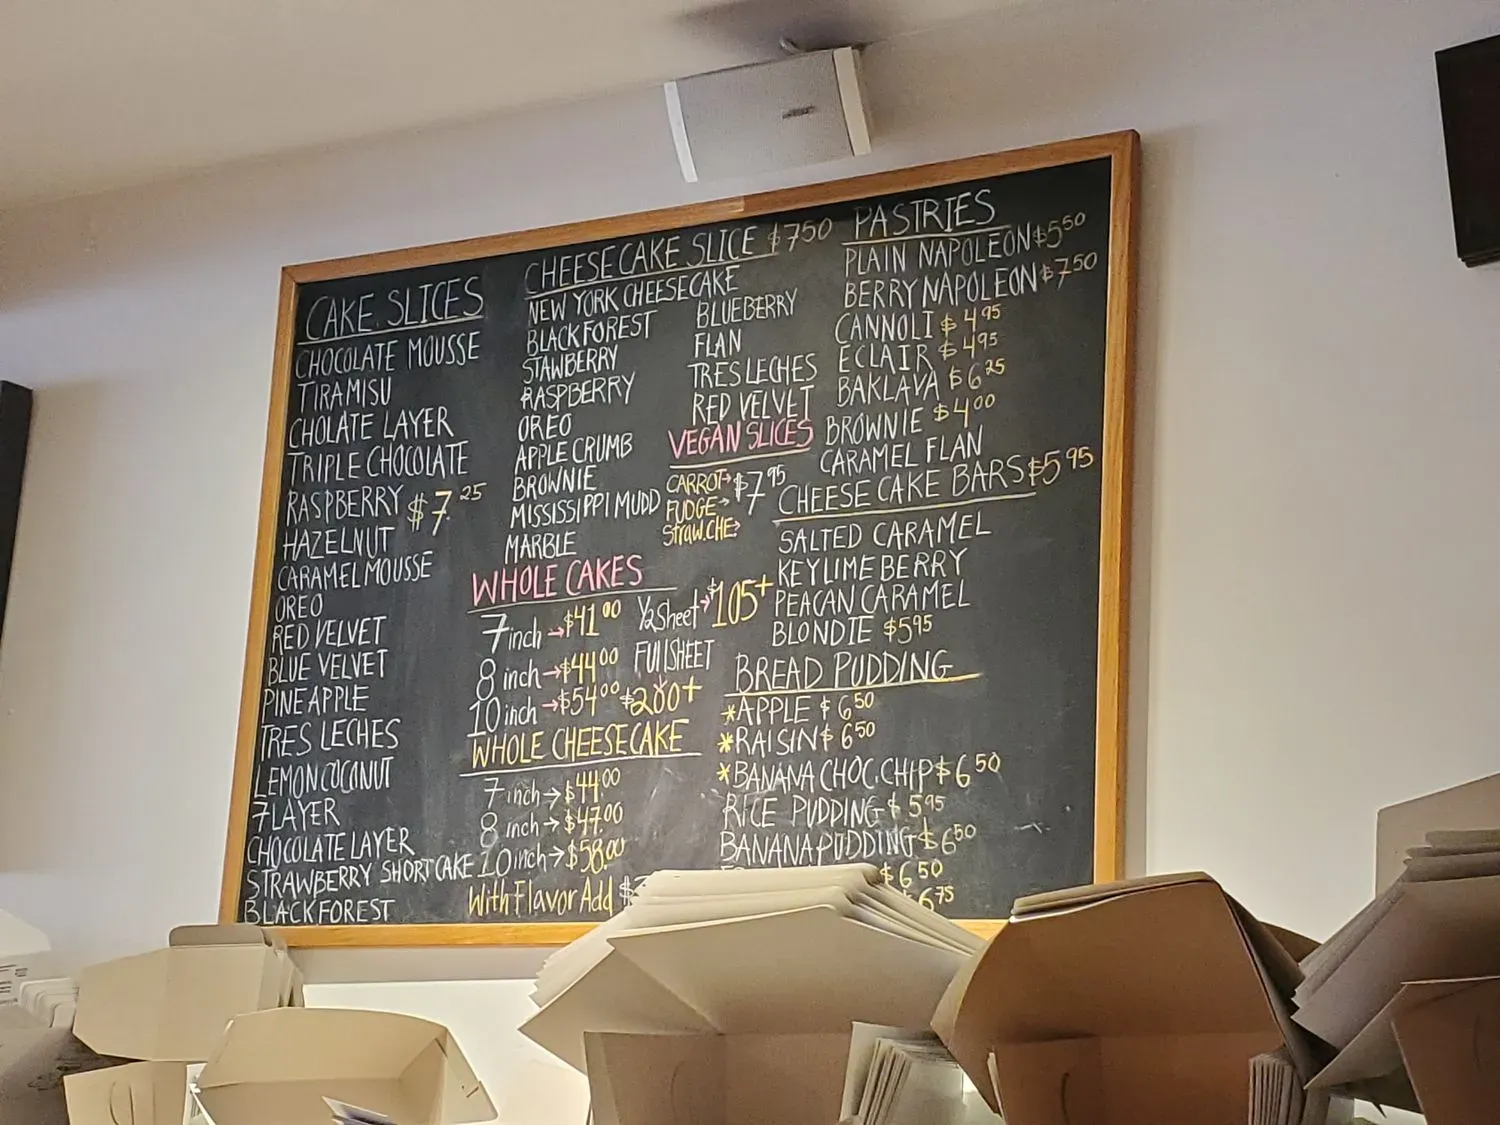 CAKE SLICES
CHOCOLATE MOUSSE
TIRAMISU
CHOLATE LAYER
TRIPLE CHOCOLATE
RASPBERRY $7.25
HAZELNUT
CARAMEL MOUSSE
OREO
RED VELVET
BLUE VELVET
PINEAPPLE
TRES LECHES
LEMON COCONUT
7 LAYER
CHOCOLATE LAYER
STRAWBERRY SHORTCAKE
BLACKFOREST
CHEESECAKE SLICE $7.50
NEW YORK CHEESECAKE
BLACKFOREST
STAWBERRY
RASPBERRY
OREO
APPLE CRUMB
BROWNIE
MISSISSIPPI MUDD
MARBLE
BLUEBERRY
FLAN
TRES LECHES
RED VELVET
VEGAN SLICES
CARROT→ $7.95
FUDGE→
Straw.CHE→
WHOLE CAKES
7 inch → $41.00
8 inch → $44.00
10 inch → $54.00
1/2 Sheet → $105+
FUllSHEET
$200+
WHOLE CHEESECAKE
7 inch → $44.00
8 inch → $47.00
10 inch → $58.00
With Flavor Add $
PASTRIES
PLAIN NAPOLEON $5.50
BERRY NAPOLEON $7.50
CANNOLI $4.95
ECLAIR $4.95
BAKLAVA $6.25
BROWNIE $4.00
CARAMEL FLAN
CHEESE CAKE BARS $5.95
SALTED CARAMEL
KEYLIME BERRY
PEACAN CARAMEL
BLONDIE $5.95
BREAD PUDDING
*APPLE $6.50
*RAISIN $6.50
*BANANA CHOC.CHIP $6.50
RICE PUDDING $5.95
BANANA PUDDING $6.50
$6.50
$6.75